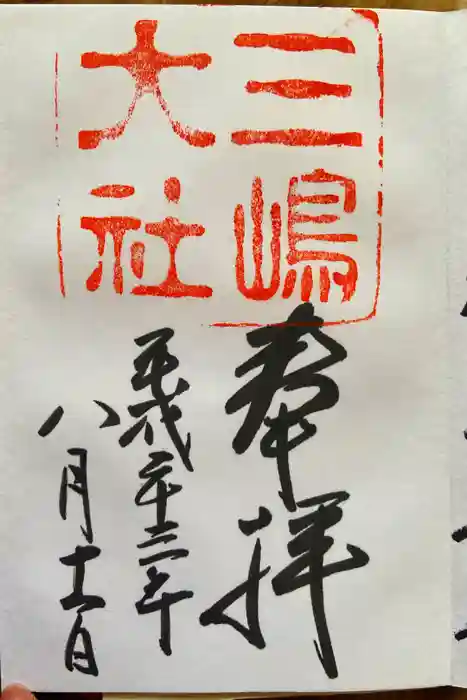 三嶋
大社
奉拝
平成二十三年
八月十一日